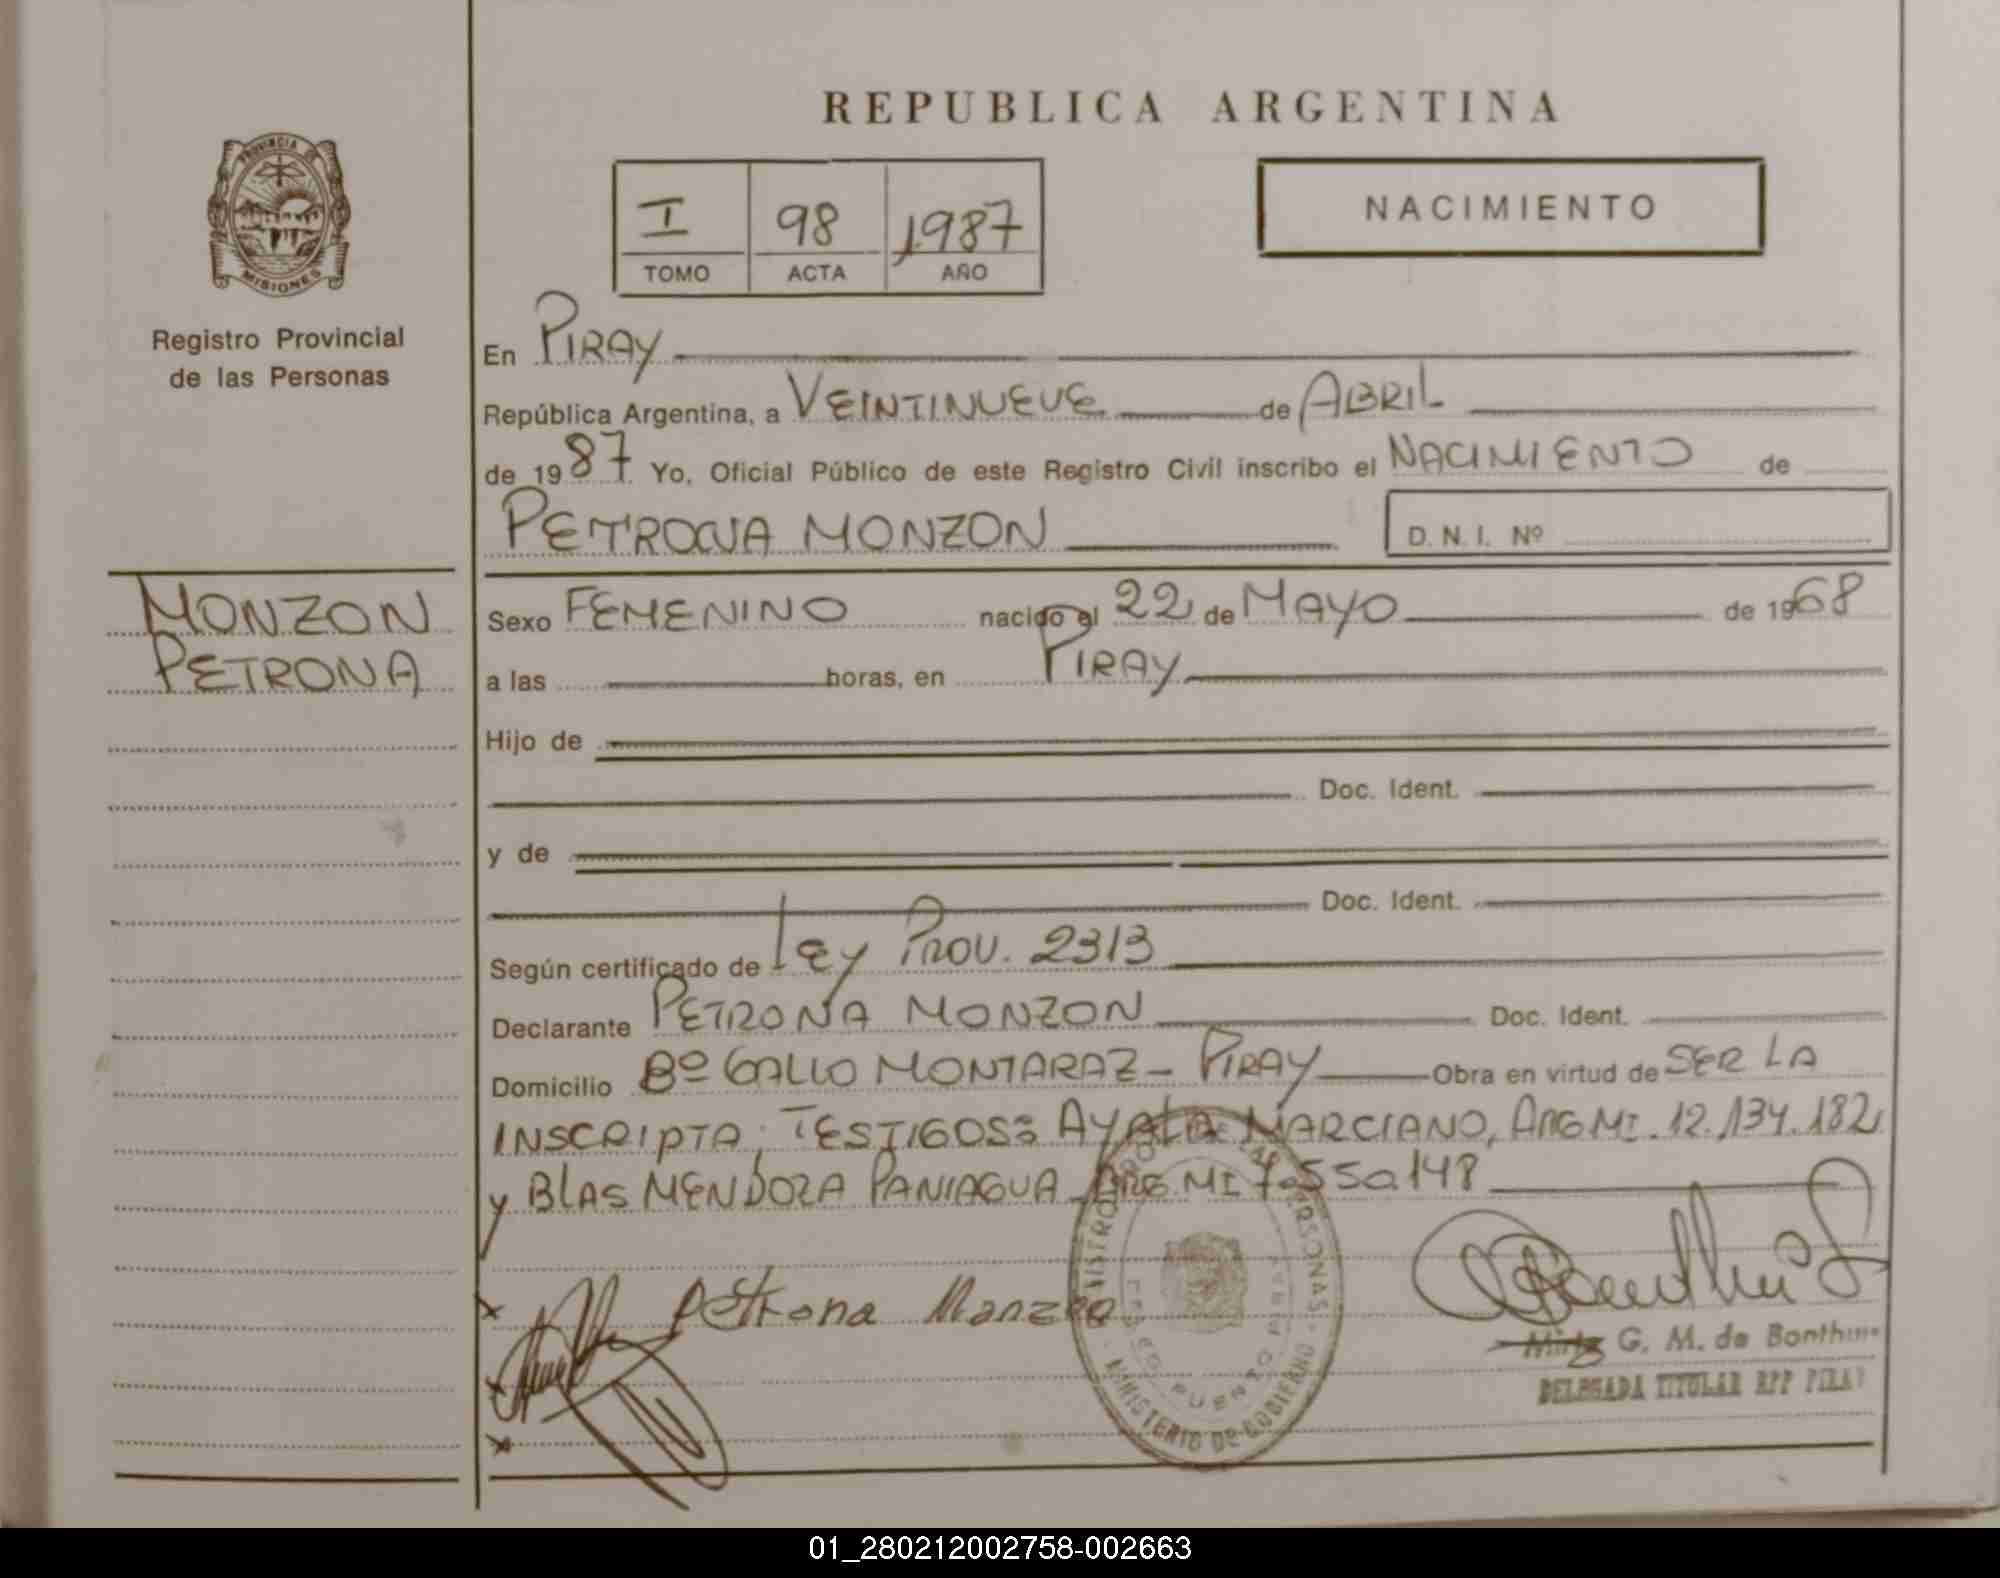 REPUBLICA ARGENTINA
PROVINCIA DE
MISIONES
Registro Provincial
de las Personas
I 98 1987
TOMO ACTA AÑO
NACIMIENTO
En PIRAY
República Argentina, a VEINTINUEVE de ABRIL
de 1987. Yo, Oficial Público de este Registro Civil inscribo el NACIMIENTO de
PETRONA MONZON
D. N. I. Nº
MONZON
PETRONA
Sexo FEMENINO nacido el 22 de MAYO de 1968
a las horas, en PIRAY
Hijo de
Doc. Ident.
y de
Doc. Ident.
Según certificado de LEY PROV. 2313
Declarante PETRONA MONZON Doc. Ident.
Domicilio Bº GALLO MONTARAZ - PIRAY Obra en virtud de SER LA
INSCRIPTA. TESTIGOS: AYALA MARCIANO, ARG MI. 12.134.182
y BLAS MENDOZA PANIAGUA - ARG. MI 7.550.148
Petrona Monzon
PERSONAS
MINISTERIO DE GOBIERNO
G. M. de
DELEGADA TITULAR RPP PIRAY
01_280212002758-002663